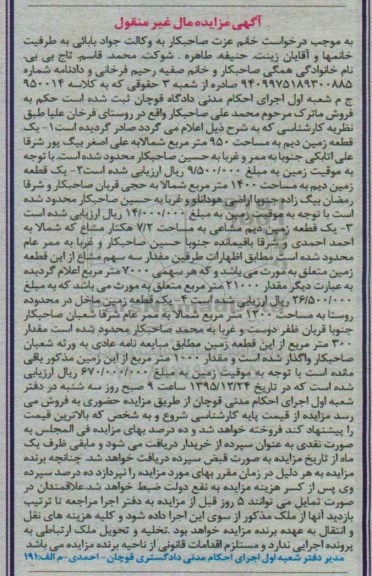 آگهی مزایده مال غیر منقول
به موجب درخواست خانم عزت صاحبکار به وکالت جواد بابائی به طرفیت
خانمها و آقایان زینت، حنیفه، طاهره، شوکت، محمد، قاسم، تاج بی بی،
نام خانوادگی همگی صاحبکار و خانم صفیه رحیم فرخانی و دادنامه شماره
۹۴۰۹۹۷۵۱۸۹۳۰۰۸۸۵ صادره از شعبه ۳ حقوقی که به کلاسه ۹۵۰۰۱۴
ج م شعبه اول اجرای احکام مدنی دادگاه قوچان ثبت شده است حکم به
فروش ماترک مرحوم محمد علی صاحبکار واقع در روستای فرخان علیا طبق
نظریه کارشناسی که به شرح ذیل اعلام می گردد صادر گردیده است ۱- یک
قطعه زمین دیم به مساحت ۹۵۰ متر مربع شمالا به علی اصغر بیگ پور شرقا
علی اتابکی جنوبا به ممر و غربا به حسین صاحبکار محدود شده است. با توجه
به موقعیت زمین به مبلغ ۹/۵۰۰/۰۰۰ ریال ارزیابی شده است ۲- یک قطعه
زمین دیم به مساحت ۱۴۰۰ متر مربع شمالا به حجی قربان صاحبکار و شرقا
رمضان بیگ زاده جنوبا اراضی هودانلو و غربا به حسین صاحبکار محدود شده
است با توجه به موقعیت زمین به مبلغ ۱۴/۰۰۰/۰۰۰ ریال ارزیابی شده است
۳- یک قطعه زمین دیم مشاعی به مساحت ۷/۲ هکتار مشاع که شمالا به
احمد احمدی و شرقا باقیمانده جنوبا حسین صاحبکار و غربا به ممر عام
محدود شده است مطابق اظهارات طرفین مقدار سه سهم مشاع از این قطعه
زمین متعلق به مورث می باشد و که هر سهمی ۷۰۰۰ متر مربع اعلام گردیده
به عبارت دیگر مقدار ۲۱۰۰۰ متر مربع متعلق به مورث می باشد که به مبلغ
۲۶/۵۰۰/۰۰۰ ریال ارزیابی شده است ۴- یک قطعه زمین داخل در محدوده
روستا به مساحت ۱۳۰۰ متر مربع شمالا به ممر عام شرقا شعبان صاحبکار
جنوبا قربان ظفر دوست و غربا به محمد صاحبکار محدود شده است مقدار
۳۰۰ متر مربع از این قطعه زمین مطابق مبایعه نامه عادی به ورثه شعبان
صاحبکار واگذار شده است و مقدار ۱۰۰۰ متر مربع از این زمین مذکور باقی
مانده است با توجه به موقعیت زمین به مبلغ ۶۷۰/۰۰۰/۰۰۰ ریال ارزیابی
شده است که در تاریخ ۱۳۹۵/۱۲/۲۴ ساعت ۹ صبح روز سه شنبه در دفتر
شعبه اول اجرای احکام مدنی قوچان از طریق مزایده حضوری به فروش می
رسد مزایده از قیمت پایه کارشناسی شروع و به شخص که بالاترین قیمت
را پیشنهاد کند فروخته خواهد شد و ده درصد بهای مزایده فی المجلس به
صورت نقدی به عنوان سپرده از خریدار دریافت می شود و مابقی ظرف یک
ماه از تاریخ مزایده به صورت قبض سپرده دریافت خواهد شد. چنانچه برنده
مزایده به هر دلیل در زمان مقرر بهای مورد مزایده را نپردازد ده درصد سپرده
وی پس از کسر هزینه مزایده به نفع دولت ضبط خواهد شد علاقمندان در
صورت تمایل می توانند ۵ روز قبل از مزایده به دفتر اجرا مراجعه تا ترتیب
بازدید آنها از ملک مذکور از سوی این اجرا داده شود و کلیه هزینه های نقل
و انتقال به عهده برنده مزایده خواهد بود. تخلیه و تحویل ملک ارتباطی به
پرونده اجرایی ندارد و مستلزم اقدامات قانونی از ناحیه برنده مزایده می باشد
مدیر دفتر شعبه اول اجرای احکام مدنی دادگستری قوچان - احمدی - م الف: ۱۹۱